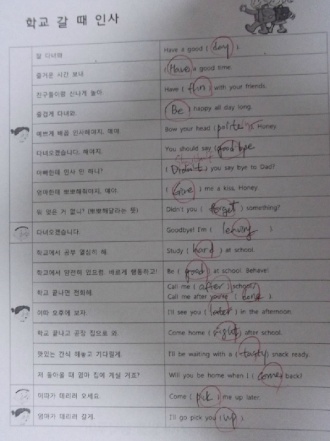 학교 갈 때 인사
잘 다녀와 Have a good ( day )
즐거운 시간 보내 ( Have ) a good time.
친구들이랑 신나게 놀아. Have ( fun ) with your friends.
즐겁게 다녀라. ( Be ) happy all day long.
예쁘게 배꼽 인사해야지, 애야. Bow your head ( politely ), Honey
다녀오겠습니다, 해야지. You should say ( goodbye
아빠한테 인사 안 하니? ( Didn't ) you say bye to Dad?
엄마한테 뽀뽀해줘야지, 얘야 ( Give ) me a kiss, Honey.
뭐 잊은 거 없니? (뽀뽀해달라는 뜻) Didn't you ( forget ) something?
다녀오겠습니다. Goodbye! I'm ( leaving )
학교에서 공부 열심히 해. Study ( hard ) at school.
학교에서 얌전히 있으렴. 바르게 행동하고! Be ( good ) at school. Behave!
학교 끝나면 전화해. Call me ( after ) school.
Call me after you're ( here ).
이따 오후에 보자. I'll see you ( later ) in the afternoon.
학교 끝나고 곧장 집으로 와. Come home ( right ) after school.
맛있는 간식 해놓고 기다릴게. I'll be waiting with a ( tasty ) snack ready.
저 돌아올 때 엄마 집에 계실 거죠? Will you be home when I ( come ) back?
데리러 오세요. Come ( pick ) me up later.
엄마가 데리러 갈게. I'll go pick you ( up )